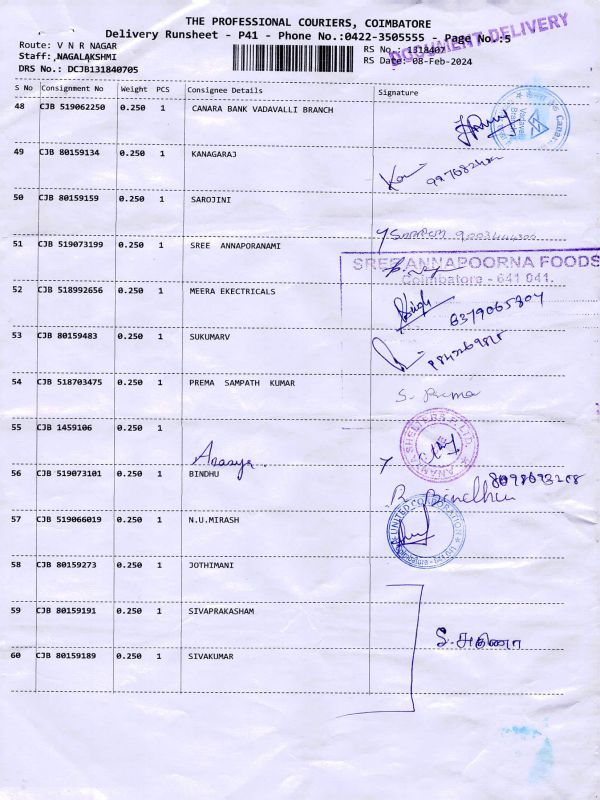 THE PROFESSIONAL COURIERS, COIMBATORE
Delivery Runsheet - P41 - Phone No.:0422-3505555 - Page No.:5
DOCUMENT DELIVERY
Route: V N R NAGAR
RS No.: 1318407
Staff: NAGALAKSHMI
RS Date: 08-Feb-2024
DRS No.: DCJB131840705
S No Consignment No Weight PCS Consignee Details Signature
48 CJB 519062250 0.250 1 CANARA BANK VADAVALLI BRANCH
49 CJB 80159134 0.250 1 KANAGARAJ
50 CJB 80159159 0.250 1 SAROJINI
51 CJB 519073199 0.250 1 SREE ANNAPORANAMI
SREE ANNAPOORNA FOODS
Coimbatore - 641 041.
52 CJB 518992656 0.250 1 MEERA EKECTRICALS
6379065804
53 CJB 80159483 0.250 1 SUKUMARV
54 CJB 518703475 0.250 1 PREMA SAMPATH KUMAR
S. Prema
55 CJB 1459106 0.250 1
Anasya
56 CJB 519073101 0.250 1 BINDHU
R Bindhu
57 CJB 519066019 0.250 1 N.U.MIRASH
UNITED CORPORATION
58 CJB 80159273 0.250 1 JOTHIMANI
59 CJB 80159191 0.250 1 SIVAPRAKASHAM
60 CJB 80159189 0.250 1 SIVAKUMAR